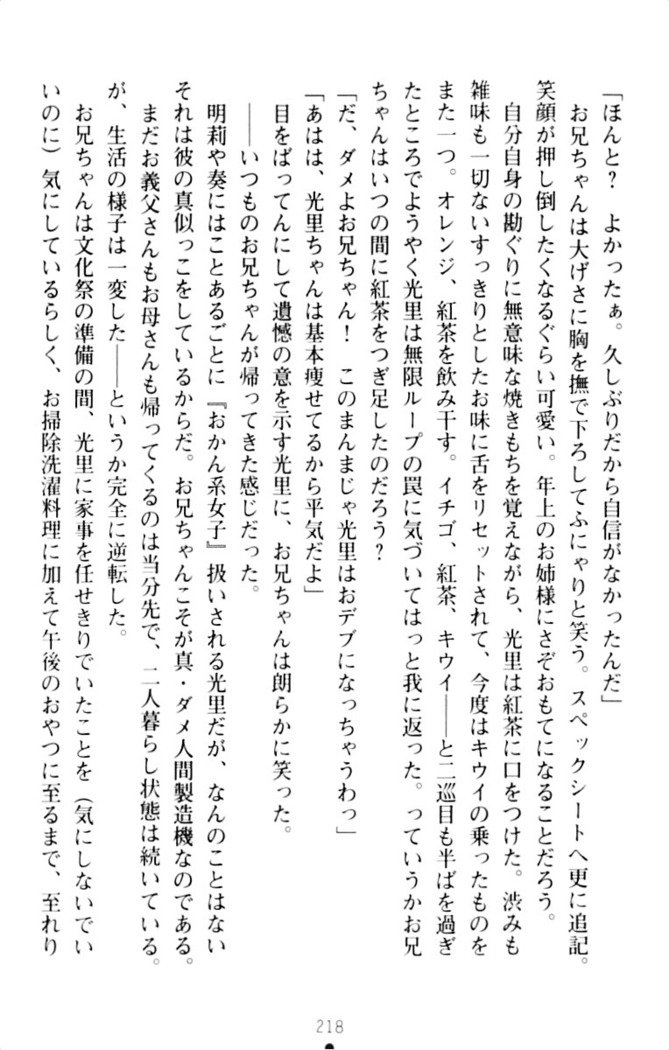 「ほんと？　よかったぁ。久しぶりだから自信がなかったんだ」
　お兄ちゃんは大げさに胸を撫で下ろしてふにゃりと笑う。スペックシートへ更に追記。
笑顔が押し倒したくなるぐらい可愛い。年上のお姉様にさぞおもてになることだろう。
　自分自身の勘ぐりに無意味な焼きもちを覚えながら、光里は紅茶に口をつけた。渋みも
雑味も一切ないすっきりとしたお味に舌をリセットされて、今度はキウイの乗ったものを
また一つ。オレンジ、紅茶を飲み干す。イチゴ、紅茶、キウイ――と二巡目も半ばを過ぎ
たところでようやく光里は無限ループの罠に気づいてはっと我に返った。っていうかお兄
ちゃんはいつの間に紅茶をつぎ足したのだろう？
「だ、ダメよお兄ちゃん！　このまんまじゃ光里はおデブになっちゃうわっ」
「あはは、光里ちゃんは基本痩せてるから平気だよ」
　目をばってんにして遺憾の意を示す光里に、お兄ちゃんは朗らかに笑った。
　――いつものお兄ちゃんが帰ってきた感じだった。
　明莉や奏にはことあるごとに『おかん系女子』扱いされる光里だが、なんのことはない
それは彼の真似っこをしているからだ。お兄ちゃんこそが真・ダメ人間製造機なのである。
　まだお義父さんもお母さんも帰ってくるのは当分先で、二人暮らし状態は続いている。
が、生活の様子は一変した――というか完全に逆転した。
　お兄ちゃんは文化祭の準備の間、光里に家事を任せきりでいたことを（気にしないでい
いのに）気にしているらしく、お掃除洗濯料理に加えて午後のおやつに至るまで、至れり
218